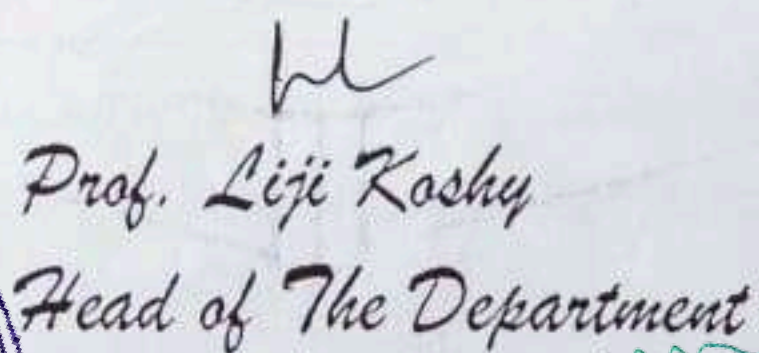 Prof. Liji Koshy
Head of The Department